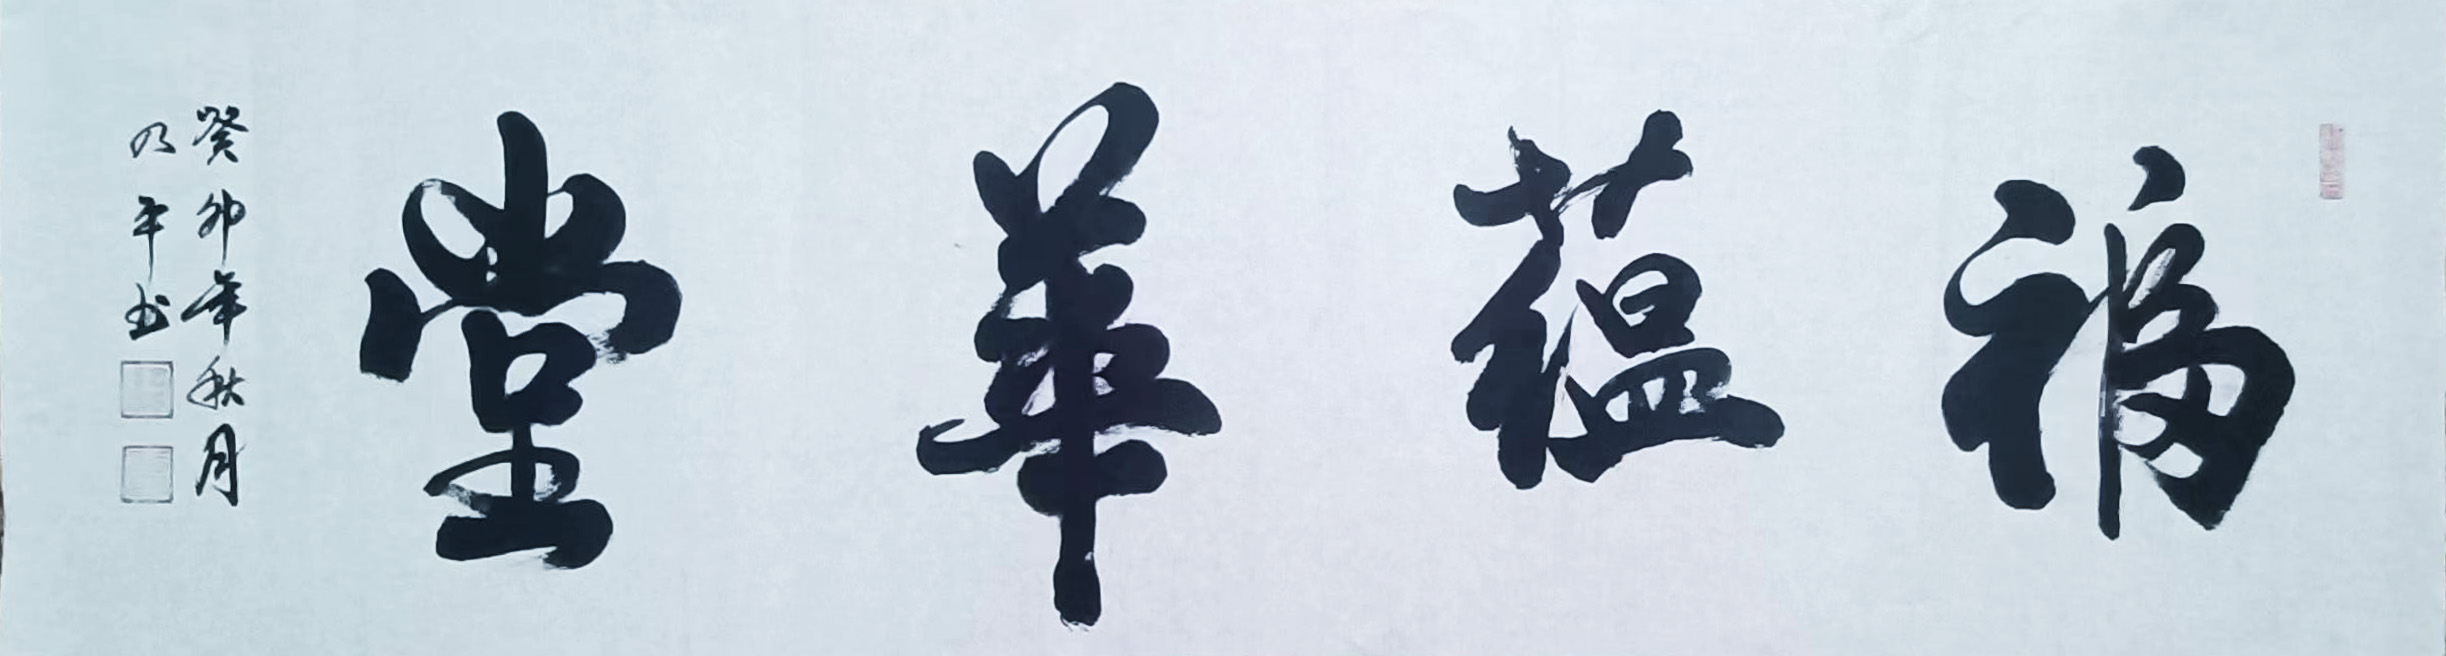 福蘊華堂
癸卯年秋月
乃平书